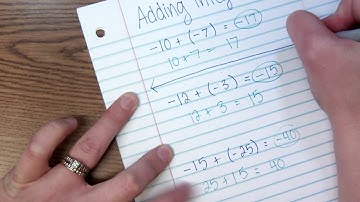 Adding
-10 + (-7) = -17
10 + 7 = 17
-12 + (-3) = -15
12 + 3 = 15
-15 + (-25) = -40
25 + 15 = 40